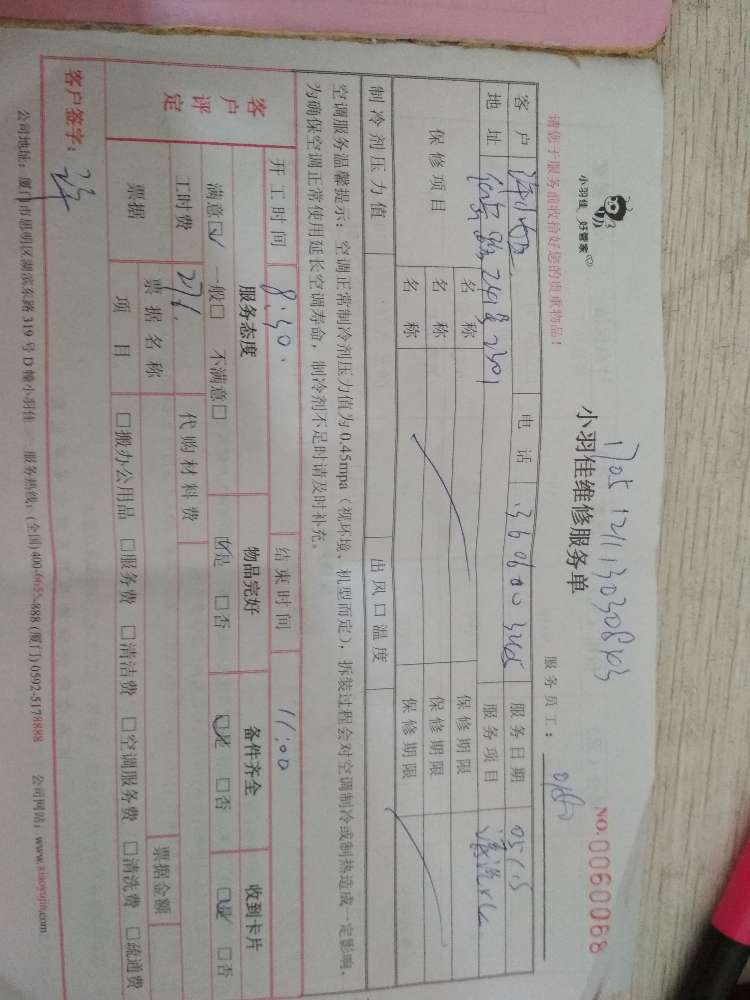 小羽佳 好管家
请您于服务前收拾好您的贵重物品！
小羽佳维修服务单
服务员工：
NO.0060068
客户 电话 服务日期 05/15
地址 服务项目
保修项目 名称 保修期限
名称 保修期限
名称 保修期限
制冷剂压力值 出风口温度
空调服务温馨提示：空调正常制冷剂压力值为0.45mpa（视环境、机型而定），拆装过程会对空调制冷或制热造成一定影响，
为确保空调正常使用延长空调寿命，制冷剂不足时请及时补充。
开工时间 8:30. 结束时间 11:00
客户评定 服务态度 物品完好 备件齐全 收到卡片
满意☑ 一般□ 不满意□ ☑是 □否 ☑是 □否 ☑是 □否
工时费 代购材料费
票据 票据名称 票据金额
项目 □搬办公用品 □服务费 □清洁费 □空调服务费 □清洗费 □疏通费
客户签字：
公司地址：厦门市思明区湖滨东路319号D幢小羽佳 服务热线：(全国)400-6655-888 (厦门)0592-5178888 公司网站：www.xiaoyujia.com